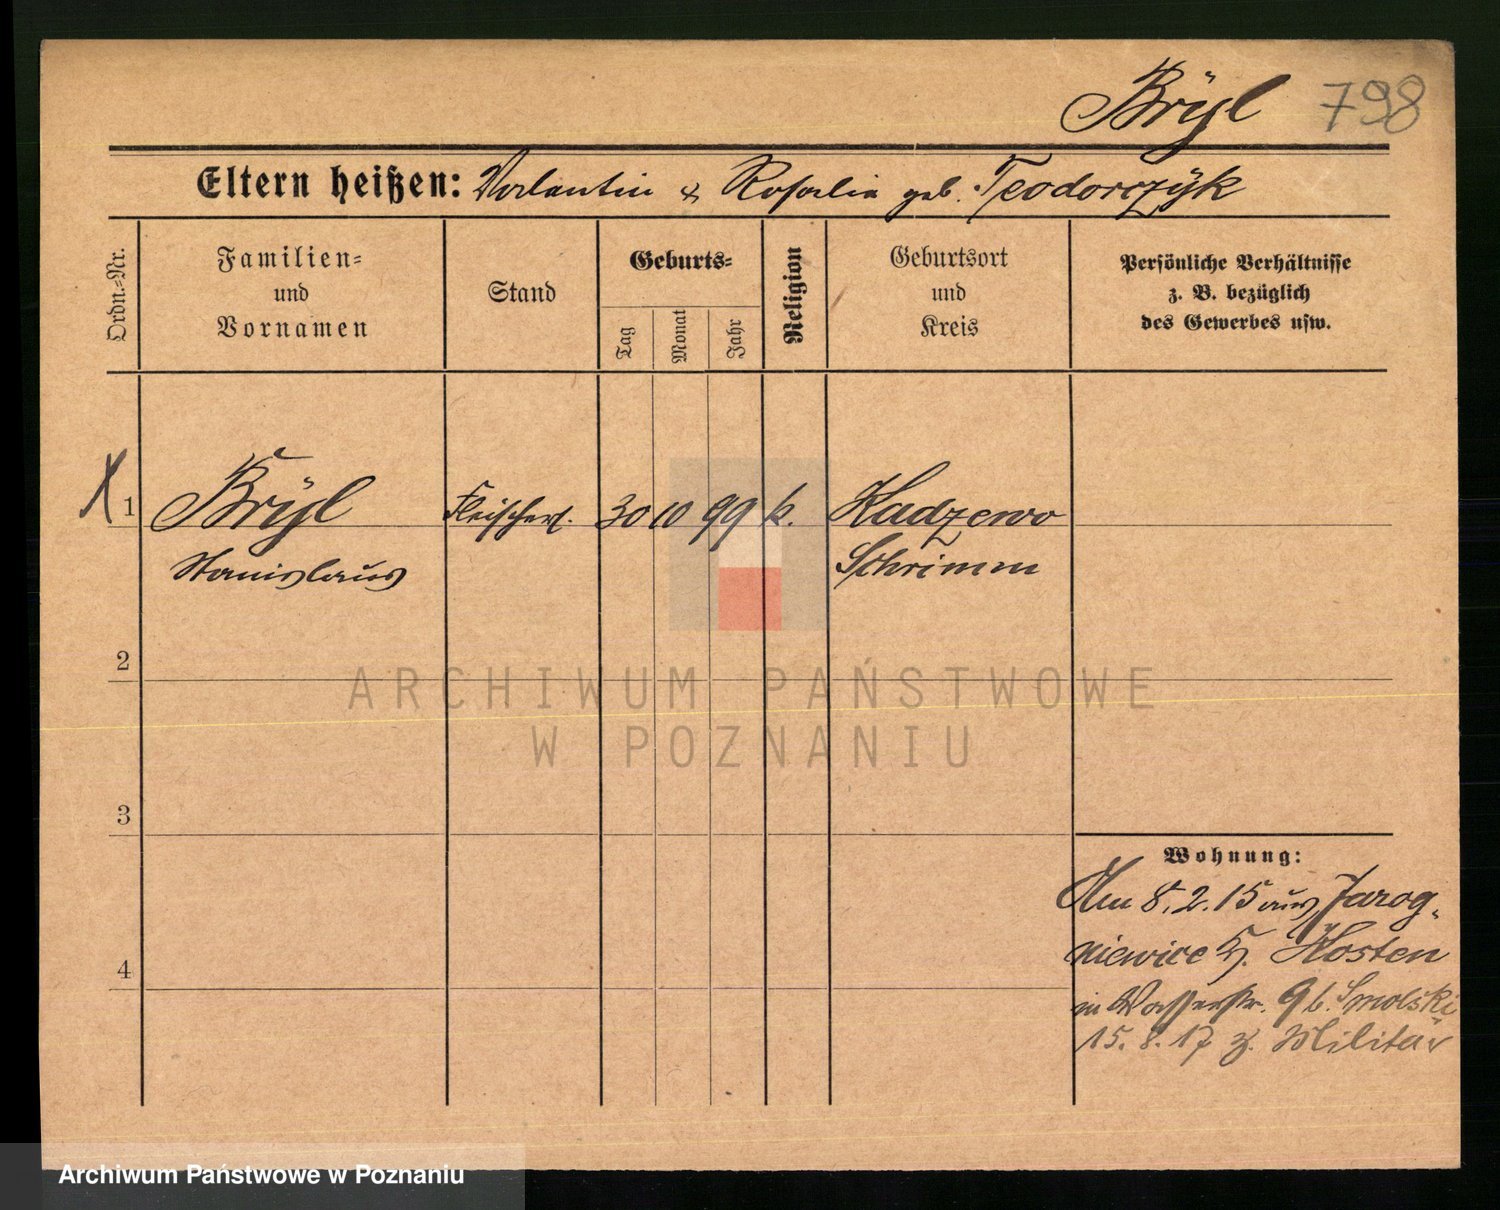 Brÿl 798
Eltern heißen: Valentin & Rosalia geb. Teodorczÿk
Ordn.=Nr.
Familien=
und
Vornamen
Stand
Geburts=
Tag
Monat
Jahr
Religion
Geburtsort
und
Kreis
Persönliche Verhältnisse
z. B. bezüglich
des Gewerbes usw.
1 Brÿl Fleischerl. 30 10 99 k. Kadzewo
Stanislaus Schrimm
2
3
4
Wohnung:
Am 8.2.15 aus Jarog-
niewice K. Kosten
in Wasserstr. 9 b. Smolski
15.8.17 z. Militär
ARCHIWUM PAŃSTWOWE
W POZNANIU
Archiwum Państwowe w Poznaniu